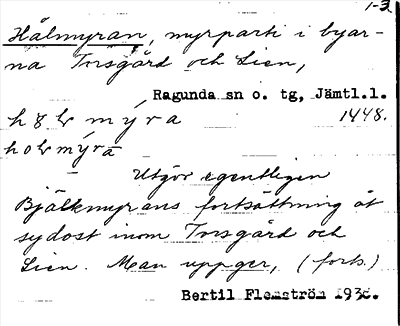 1-2
Hålmyran, myrparti i byar-
na Torsgård och Lien,
Ragunda sn o. tg, Jämtl.l.
1448.
Utgör egentligen
Björkmyrans fortsättning åt
sydost inom Torsgård och
Lien. Man uppger, (forts.)
Bertil Flemström 1936.